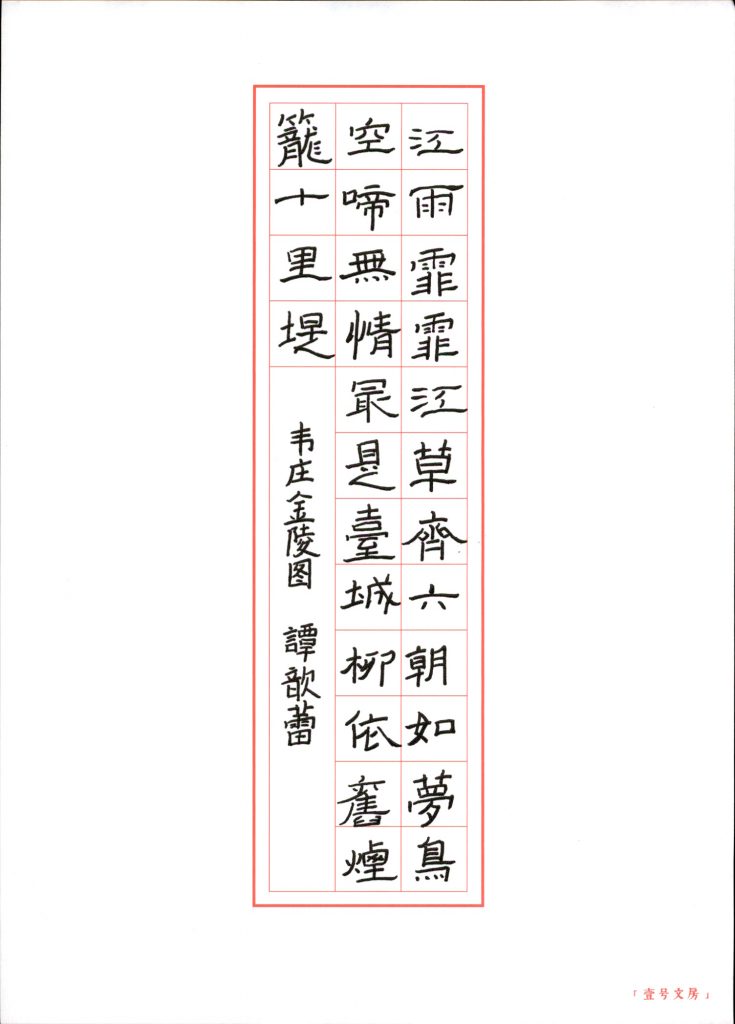 江雨霏霏江草齊六朝如夢鳥
空啼無情最是臺城柳依舊煙
籠十里堤
韦庄金陵图 譚歆蕾
「壹号文房」